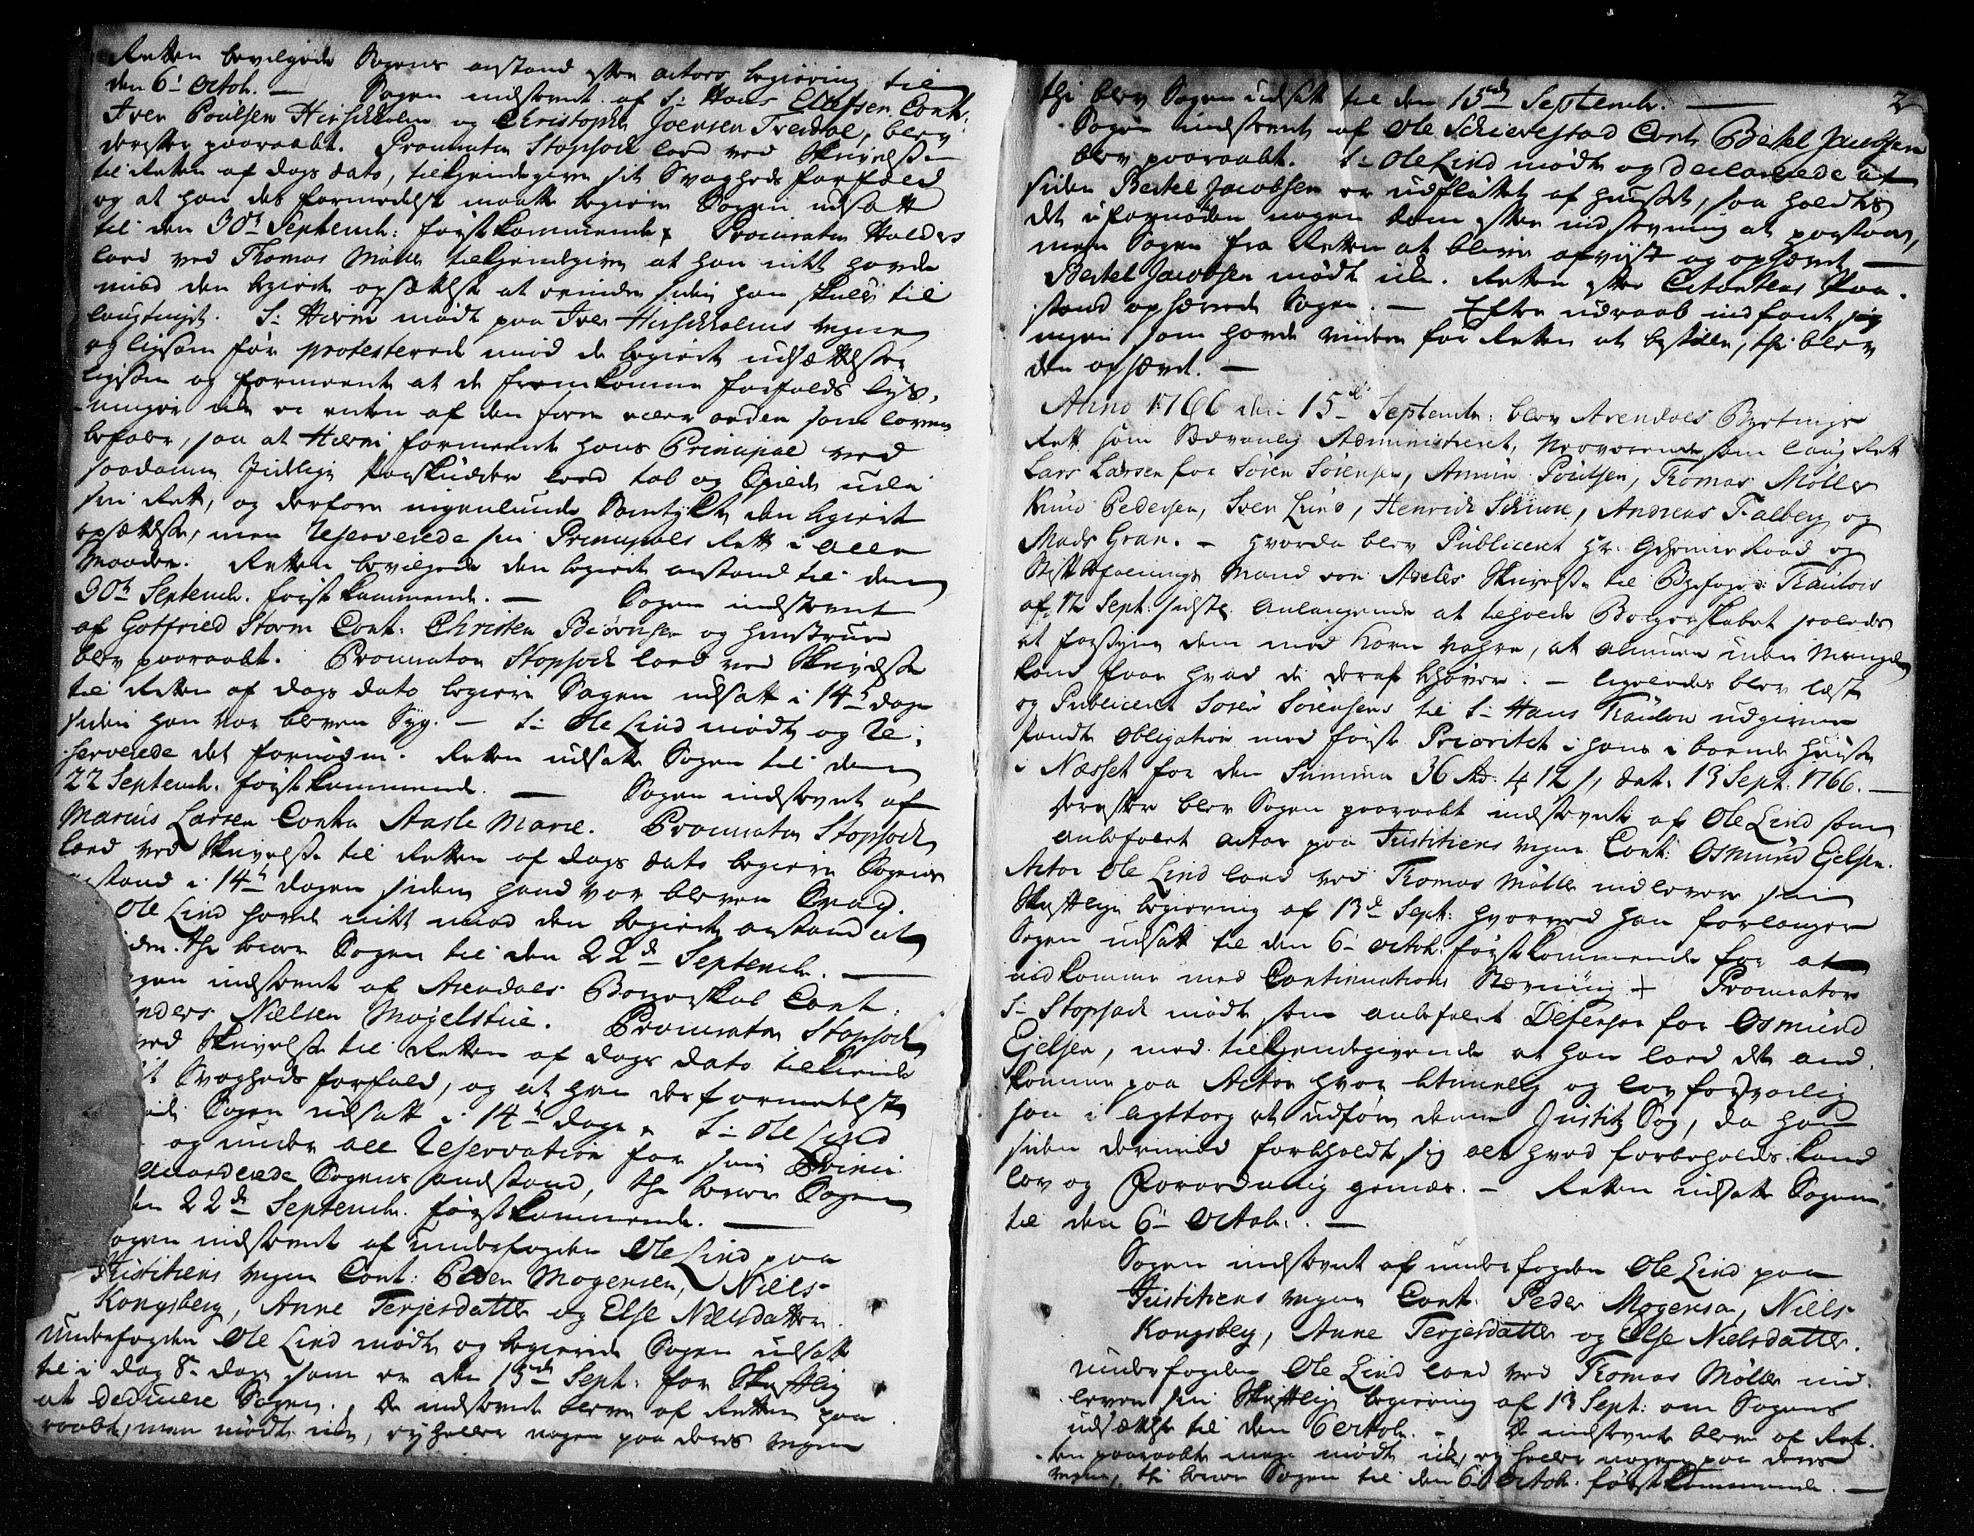 Retten bevilgede Sagens anstand efter actors begiering til
den 6te octob. — Sagen indstevnt af Sr Hans Olufsen Contr:
Iver Poulsen Hirschholm og Christopher Joensen Tredal, blev
derefter paaraabt. Procurator Stopsack lod ved Skrivelse
til Retten af dags dato, tilkiendegive sit Svagheds forfald
og at han des formedelst maatte begiere Sagen udsatt
til den 30te Septemb: førstkommende. Procurator Halders
lod ved Thomas Møller tilkiendegive at han intet havde
imod den begierte opsættelse at erindre siden han skulle til
laugtinget. Sr Hierm mødt paa Iver Hirschholms vegne
og ligesom før protesterede imod de begierte udsættelser
ligesom og formeente at de fremkomne forfalds lys-
ninger ikke er enten af den form eller orden som loven
befaler, saa at formeente hans Principal ved
saadanne idelige forskudder leed tab og Spilde udi
sin Rett, og derfore ingenlunde Samtykte den begierte
opsættelse, men reserverede sin Principals Rett i alle
Maader. Retten bevilgede den begierte anstand til den
30te Septemb. førstkommende. — Sagen indstevnt
af Gotfried Storm Cont: Christen Biørnsen og hustrue
blev paaraabt. Procurator Stopsack lod ved Skrivelse
til Retten af dags dato begiere Sagen udsatt i 14ten dage
siden han var bleven Syg. — Sr Ole Lind mødte og re-
serverede det fornødne. Retten udsatte Sagen til den
22 Septemb. førstkommende. — Sagen indstevnt af
Marcus Larsen Contra Aasle Marie. Procurator Stopsack
lod ved Skrivelse til Retten af dags dato begiere Sagens
anstand i 14ten dagen siden hand var bleven Svag.
Ole Lind havde intet imod den begierte anstand at
thi beroer Sagen til den 22de Septemb. —
agen indstevnt af Arendals Borgerskab Cont.
nders Nielsen Mogelstue. Procurator Stopsack
ved Skrivelse til Retten af dags dato tilkiende
it Svagheds forfald, og at han derformedelst
Sagen udsatt i 14ten dage. Sr Ole Lind
og under all reservation for sin Princi
Sagens anstand, thi beroer Sagen
den 22de Septemb. førstkommende. —
agen indstevnt af underfogden Ole Lind paa
Justitiens vegne Cont: Peder Mogensen, Niels
Kongsberg, Anne Terjesdatter og Else Nielsdatter.
Underfogden Ole Lind mødte og begierede Sagen udsatt
til i dag 8te dage som er den 15de Sept: for Skriftlig
at deducere Sagen. De indstevnte bleve af Retten paa
raabt, men mødte icke, ey heller nogen paa deres vegne
2
thi blev Sagen udsatt til den 15de Septemb. —
Sagen indstevnt af Ole Schierestad Contr Bertel Jacobsen
blev paaraabt. Sr Ole Lind mødte og declarerede at
siden Bertel Jacobsen er udfløttet af huuset, saa holdtes
det ufornøden nogen dom efter indstevning at paastaae,
men Sagen fra Retten at blive afviist og ophævet —
Bertel Jacobsen mødt icke. Retten efter Citantens Paa-
stand ophævede Sagen. — Efter udraab indfant sig
ingen som havde videre for Retten at bestille, thi blev
den ophævet. —
Anno 1766 den 15de Septemb: blev Arendals Byetings
Rett som Sædvanlig Administreret, Nærværende som laug Rett
Lars Larsen for Søren Sørensen, Poulsen, Thomas Møller
Knud Pedersen, Sven Lund, Henrich Schiwe, Andreas Falberg og
Mads Gran. — hvorda blev Publiceret Hr. Geheime Raad og
Stiftbefalings Mand von Adelers Skrivelse til Byefoged Trautois
af 12 Sept: sidstl. Anlangende at tilholde Borgerskabet saaledes
at forsyne dem med Korn vahre, at almuen uden Mangel
kand faae hvad de deraf behøver. — ligeledes blev læst
og Publiceret Søren Sørensens til Sr Hans Trautow udgivne
Pandte Obligation med første Prioritet i hans i boende huus
i Næsset for den Summa 36 Rd. 4 12 s. dat. 13 Sept. 1766. —
derefter blev Sagen paaraabt indstevnt af Ole Lind som
anbefalet actor paa Justitiens vegne Cont: Osmund Ejelsen.
Actor Ole Lind lod ved Thomas Møller indlevere sin
Skriftlige begiering af 13de Sept: hvorved han forlanger
Sagen udsatt til den 6te octob. førstkommende for at
indkomme med Continuations Stævning Procurator
Sr Stopsack mødt som anbefalet Defensor for Osmund
Ejelsen, med tilkiendegivende at han lod det and
komme paa Actor hvor lemmelig og lov forsvarlig
han i agttog at udføre denne Justitz Sag, da han
siden derimod forbeholdt sig alt hvad forbeholdes kand
lov og Forordning gemæs. — Retten udsatte Sagen
til den 6te octob. —
Sagen indstevnt af underfogden Ole Lind paa
Justitiens vegne Cont. Peder Mogensen, Niels
Kongsberg, Anne Terjesdatter og Else Nielsdatter.
Underfogden Ole Lind lod ved Thomas Møller ind
levere sin Skriftlige begiering af 13 Sept: om Sagens
udsættelse til den 6 octob. — De indstevnte bleve af Ret-
ten paaraabte men mødte icke, ey heller nogen paa deres
vegne, thi beroer Sagen til den 6te octob. førstkommende. —